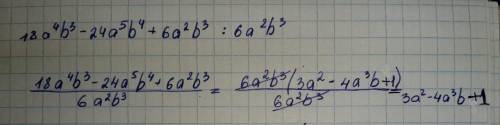 18a⁴b³-24a⁵b⁴+6a²b³ : 6a²b³
18a⁴b³-24a⁵b⁴+6a²b³ / 6a²b³ = 6a²b³(3a²-4a³b+1) / 6a²b³ = 3a²-4a³b+1